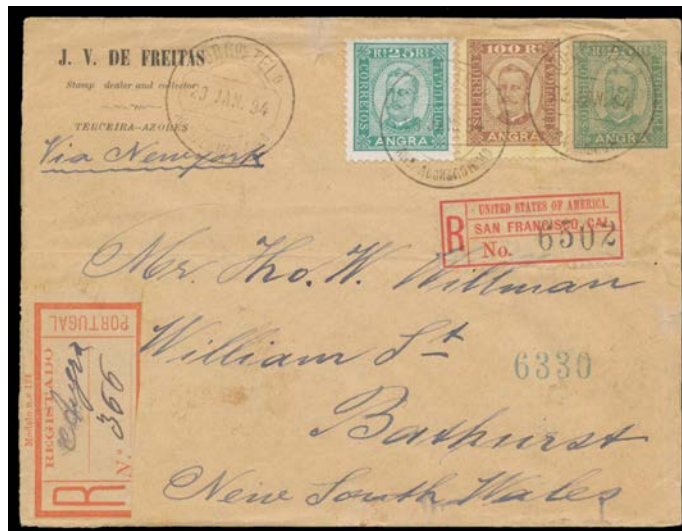 J. V. DE FREITAS
Stamp dealer and collector
TERCEIRA-AZORES
Via Newyork
23 JAN. 94
CORREIOS
25
ANGRA
CORREIOS
100 RS
ANGRA
ANGRA
R
UNITED STATES OF AMERICA.
SAN FRANCISCO, CAL.
No. 6502
Mr. Tho. W. Willman
William St
6330
Bathurst
New South Wales
PORTUGAL
REGISTADO
Angra
N.º 366
R